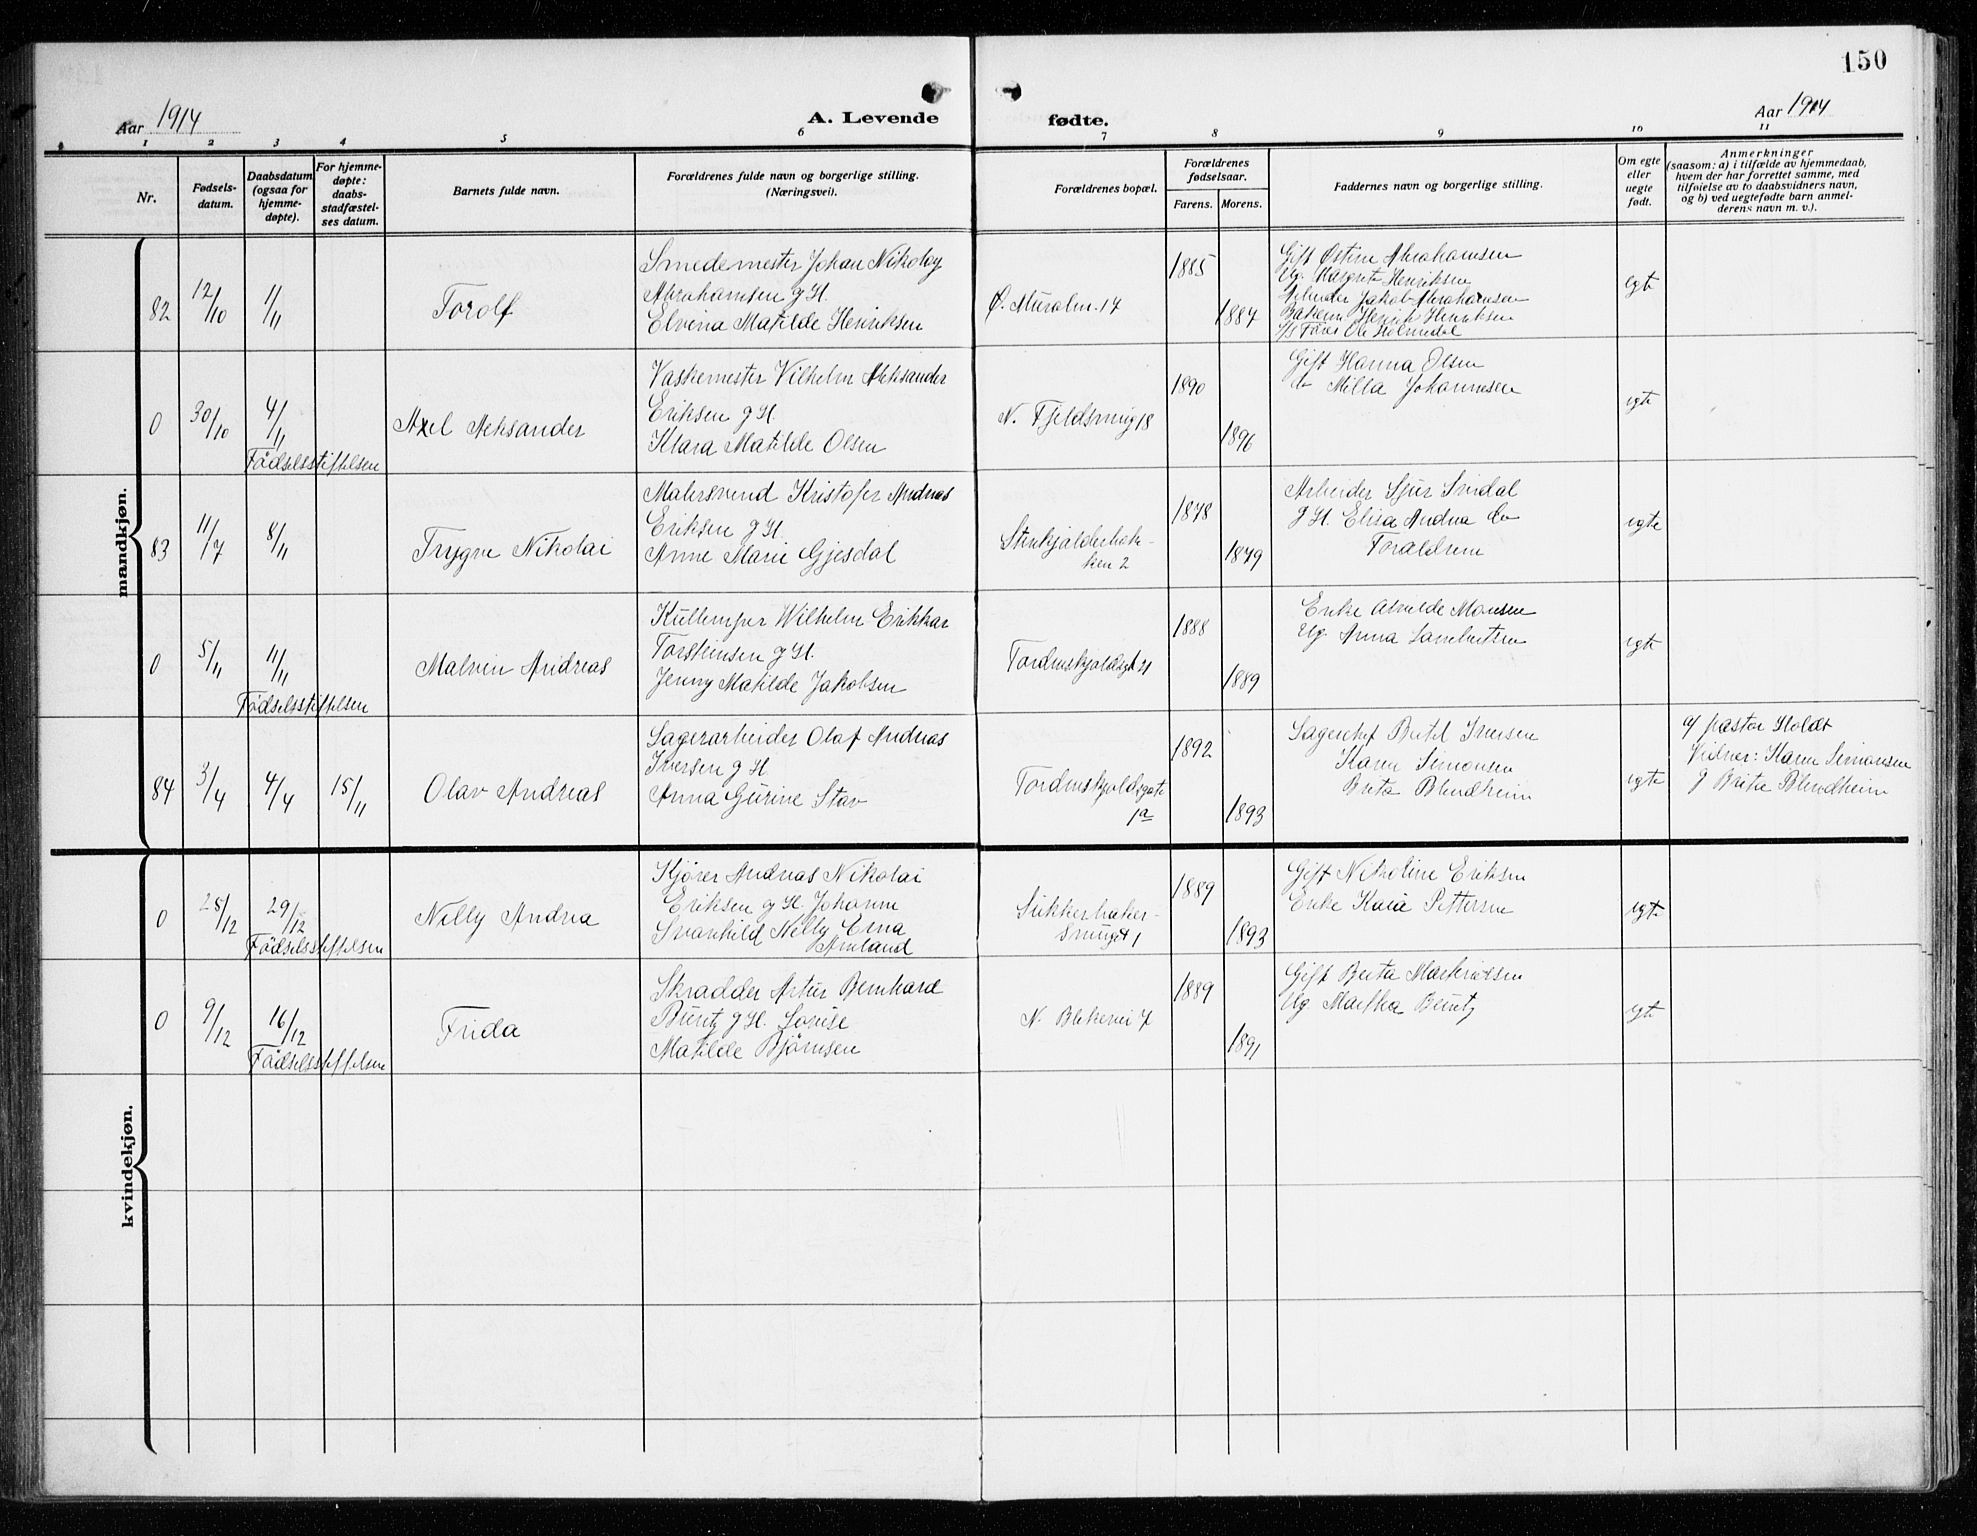 150
Aar 1914
A. Levende fødte.
Aar 1914
1 2 3 4 5 6 7 8 9 10 11
Nr.
Fødsels-
datum.
Daabsdatum
(ogsaa for
hjemme-
døpte).
For hjemme-
døpte:
daabs-
stadfæstel-
ses datum.
Barnets fulde navn.
Forældrenes fulde navn og borgerlige stilling.
(Næringsvei).
Forældrenes bopæl.
Forældrenes
fødselsaar.
Farens. Morens.
Faddernes navn og borgerlige stilling.
Om egte
eller
uegte
født.
Anmerkninger
(saasom: a) i tilfælde av hjemmedaab,
hvem der har forrettet samme, med
tilføielse av to daabsvidners navn,
og b) ved uegtefødte barn anmel-
derens navn m. v.).
mandkjøn.
82 12/10 1/11 Torolf
Smedemester Johan Nikolay
Abrahamsen g H.
Elvina Matilde Henriksen
Ø. Muralm. 17
1885
1884
Gift Østine Abrahamsen
Ug. Margrete Henriksen
Arbeider Jakob Abrahamsen
Henrik Henriksen
Ole Holmedal
egte
0 30/10 4/11
Fødselsstiftelsen
Axel Aleksander
Vaskemester Vilhelm Aleksander
Eriksen g H.
Klara Matilde Olsen
N. Fjeldsmug 18
1890
1896
Gift Hanna Olsen
do Milla Johannesen
egte
83 11/7 8/11 Trygve Nikolai
Malersvend Kristofer Andreas
Eriksen g H.
Anne Marie Gjesdal
Stenkjælderbak-
ken 2
1878
1879
Arbeider Sjur
g H. Elisa Andrea do
Forældrene
egte
0 5/11 11/11
Fødselsstiftelsen
Malvin Andreas
Kullemper Wilhelm Erikkar
Torsteinsen g H.
Jenny Matilde Jakobsen
Tordenskjoldsgt 21
1888
1889
Enke Alvilde Monsen
Ug. Anna Lambertsen
egte
84 3/4 4/4 15/11 Olav Andreas
Lagerarbeider Olaf Andreas
Iversen g H.
Anna Gurine Stav
Tordenskjoldsgate
1a
1892
1893
Lagerchef Bertil Iversen
Karen Simonsen
Brita Blindheim
egte
a/ pastor Holdt
Vidner: Karen Simonsen
g Brite Blindheim
kvindekjøn.
0 25/12 29/12
Fødselsstiftelsen
Nelly Andrea
Kjører Andreas Nikolai
Eriksen g H. Johanne
Svanhild Nelly Erna
Amland
Sukkerhuker-
smuget 1
1889
1893
Gift Nikoline Eriksen
Enke Kaia Pettersen
egte
0 9/12 16/12
Fødselsstiftelsen
Frida
Skrædder Artur Bernhard
Buntz g H. Lovise
Matilde Bjørnsen
N. Blekevei 7
1889
1891
Gift Berta Markussen
Ug. Martha Buntz
egte